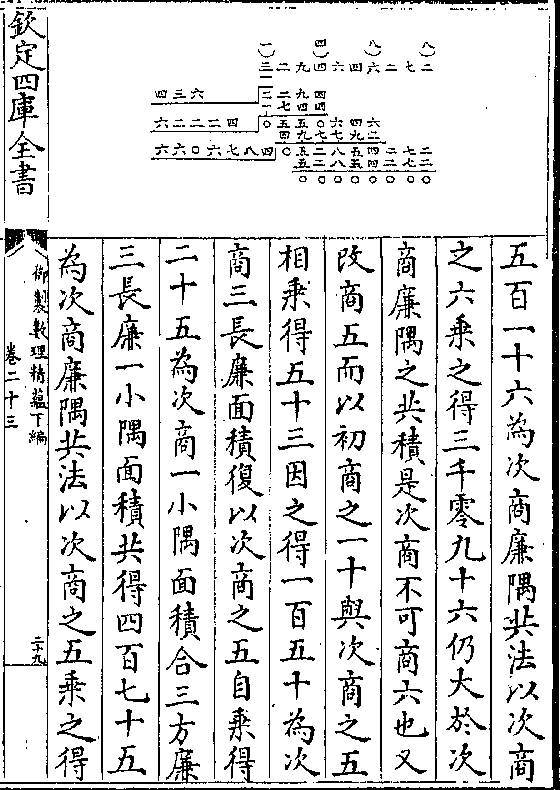 (一) (四) (八) (八)
三二九四六四六二七二
一
四三六 二二九四
一七四四
六二二二四 ０五五０六四六
四九七七九二
六六０六七八四 ０五二八五四二七二
五二八五四二七二
００００００００
五百一十六為次商廉隅共法以次商
之六乘之得三千零九十六仍大於次
商廉隅之共積是次商不可商六也又
改商五而以初商之一十與次商之五
相乘得五十三因之得一百五十為次
商三長廉面積復以次商之五自乘得
二十五為次商一小隅面積合三方廉
三長廉一小隅面積共得四百七十五
為次商廉隅共法以次商之五乘之得
欽定四庫全書
御製數理精蘊下編
卷二十三
二十九